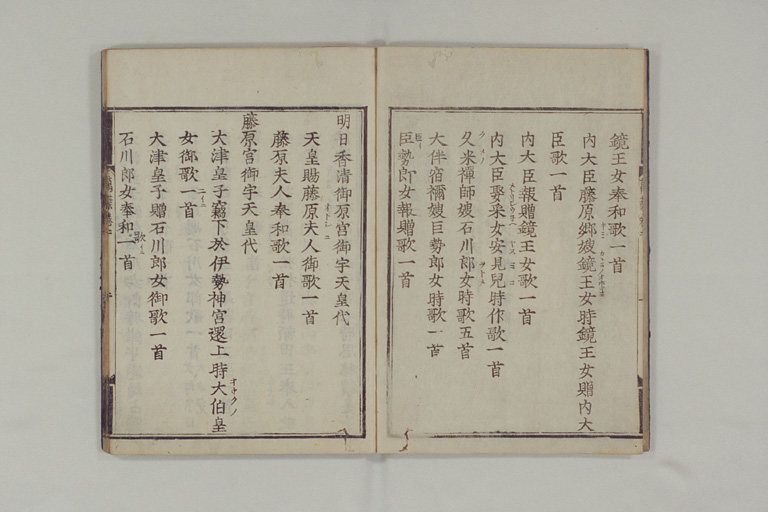 鏡王女奉和歌一首
内大臣藤原卿娉鏡王女時鏡王女贈内大
臣歌一首
内大臣報贈鏡王女歌一首
内大臣娶采女安見兒時作歌一首
久米禅師娉石川郎女時歌五首
大伴宿禰娉巨勢郎女時歌一首
臣勢郎女報贈歌一首
明日香清御原宮御宇天皇代
天皇賜藤原夫人御歌一首
藤原夫人奉和歌一首
藤原宮御宇天皇代
大津皇子竊下於伊勢神宮還上時大伯皇
女御歌一首
大津皇子贈石川郎女御歌一首
石川郎女奉和一首